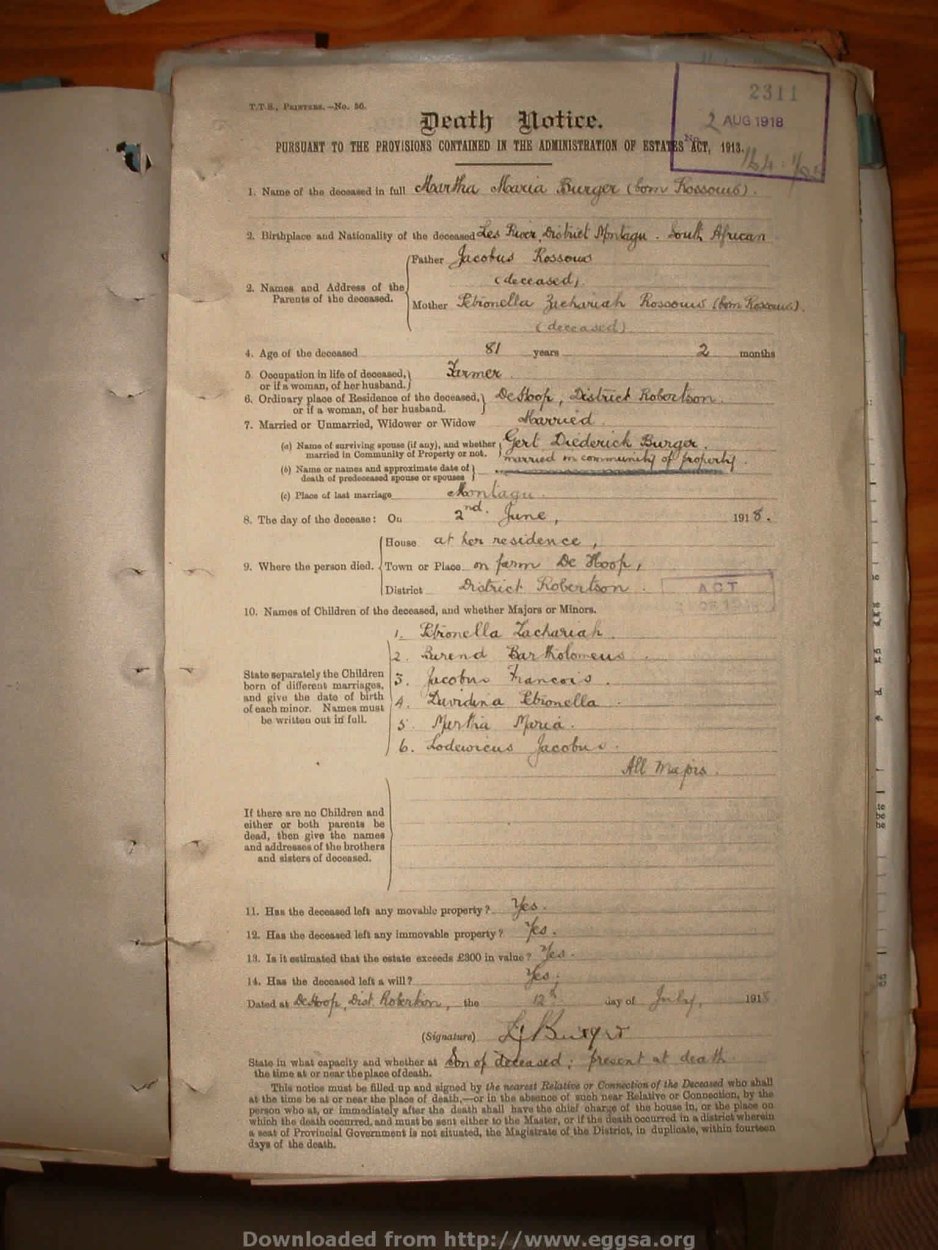 T.T.S., PRINTERS.—No. 56.
2311
2 AUG 1918
Death Notice.
PURSUANT TO THE PROVISIONS CONTAINED IN THE ADMINISTRATION OF ESTATES ACT, 1913.
No.
1. Name of the deceased in full Martha Maria Burger (born Rossouw).
2. Birthplace and Nationality of the deceased Les River, District Montagu. South African
Father Jacobus Rossouw
(deceased)
2. Names and Address of the Parents of the deceased.
Mother Petronella Zachariah Rossouw (born Rossouw).
(deceased)
4. Age of the deceased 81 years 2 months
5. Occupation in life of deceased, or if a woman, of her husband. Farmer
6. Ordinary place of Residence of the deceased, or if a woman, of her husband. De Hoop, District Robertson.
7. Married or Unmarried, Widower or Widow Married
(a) Name of surviving spouse (if any), and whether married in Community of Property or not. Gert Diederich Burger. married in community of property.
(b) Name or names and approximate date of death of predeceased spouse or spouses
(c) Place of last marriage Montagu.
8. The day of the decease: On 2nd. June, 1918.
House at her residence,
9. Where the person died. Town or Place on farm De Hoop,
District District Robertson.
ACT
10. Names of Children of the deceased, and whether Majors or Minors.
1. Petronella Zachariah.
2. Barend Bartholomeus.
State separately the Children
born of different marriages,
and give the date of birth
of each minor. Names must
be written out in full.
3. Jacobus Francois.
4. Davidina Petronella
5. Martha Maria.
6. Lodewicus Jacobus.
All Majors.
If there are no Children and
either or both parents be
dead, then give the names
and addresses of the brothers
and sisters of deceased.
11. Has the deceased left any movable property? Yes.
12. Has the deceased left any immovable property? Yes.
13. Is it estimated that the estate exceeds £300 in value? Yes.
14. Has the deceased left a will? Yes.
Dated at De Hoop, Dist Robertson, the 12th day of July, 1918
(Signature) LJ Burger
State in what capacity and whether at the time at or near the place of death. Son of deceased; present at death.
This notice must be filled up and signed by the nearest Relative or Connection of the Deceased who shall
at the time be at or near the place of death,—or in the absence of such near Relative or Connection, by the
person who at, or immediately after the death shall have the chief charge of the house in, or the place on
which the death occurred, and must be sent either to the Master, or if the death occurred in a district wherein
a seat of Provincial Government is not situated, the Magistrate of the District, in duplicate, within fourteen
days of the death.
Downloaded from http://www.eggsa.org